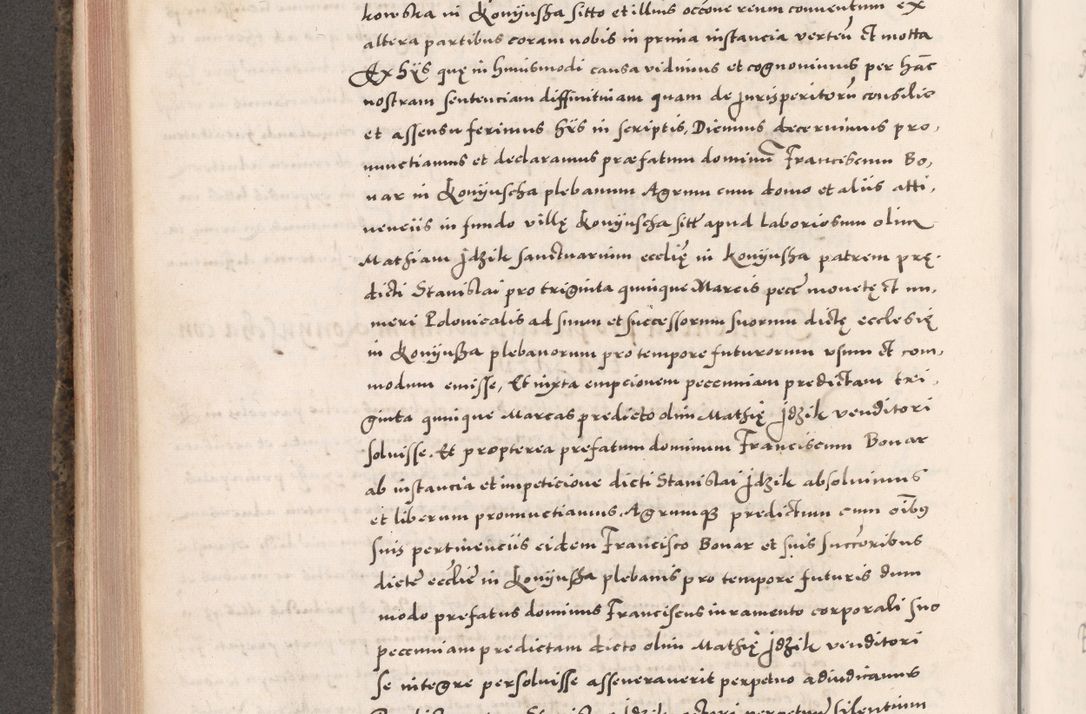 kowska in Konyusha sitto et illius occone reum conventum ex
altera partibus coram nobis in prima instancia verteñ et mota
Ex hÿs quę in huiusmodi causa vidimus et cognovimus per hãc
nostram sentenciam diffinitivam quam de jurisperitorũ consilio
et assensu ferimus hÿs in scriptis, Dicimus decernimus pro,
nunctiamus et declaramus præfatum dominũ Franciscum Bo,
nar in Konÿuscha plebanum Agrum cum domo et aliis atti,
nenciis in fundo villę Konÿuscha sitt apud laboriosum olim
Mathiam Jdzik sanctuarium ecclię in Konÿusha patrem prę,
dicti Stanislai pro triginta quinque Marcis pece monetę et nu,
meri Polonicalis ad suum et successorum suorum dictę ecclesię
in Konÿusha plebanorum pro tempore futurorum usum et com,
modum emisse, Et iuxta empcionem pecenniam predictam tri,
ginta quinque Marcas predicto olim Mathię Jdzik venditori
solvisse. Et propterea prefatum dominum Franciscum Bonar
ab instancia et impeticione dicti Stanislai Jdzik absolvimus
et liberum pronunctiamus, Agrumque predictum cum oĩbus
suis pertinenciis eidem Francisco Bonar et suis succoribus
dicte ecclie in Konÿusha plebanis pro tempore futuris dum
modo prefatus dominus Franciscus iuramento corporali suo
pecenniam predictam dicto olim Mathię Jdzik venditori
se integre persolvisse asseveraverit perpetuo adiudicamus
Stanislao Jdzik actori perpetuum silentium